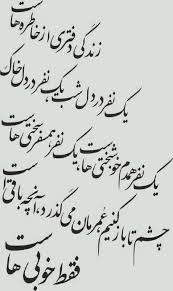 زندگی دفتری از خاطره هاست
یک نفر در دل شب یک نفر در دل خاک
یک نفر همدم خوشبختی هاست یک نفر همسفر سختی هاست
چشم تا باز کنیم عمرمان می گذرد ، آنچه باقی است
فقط خوبی هاست